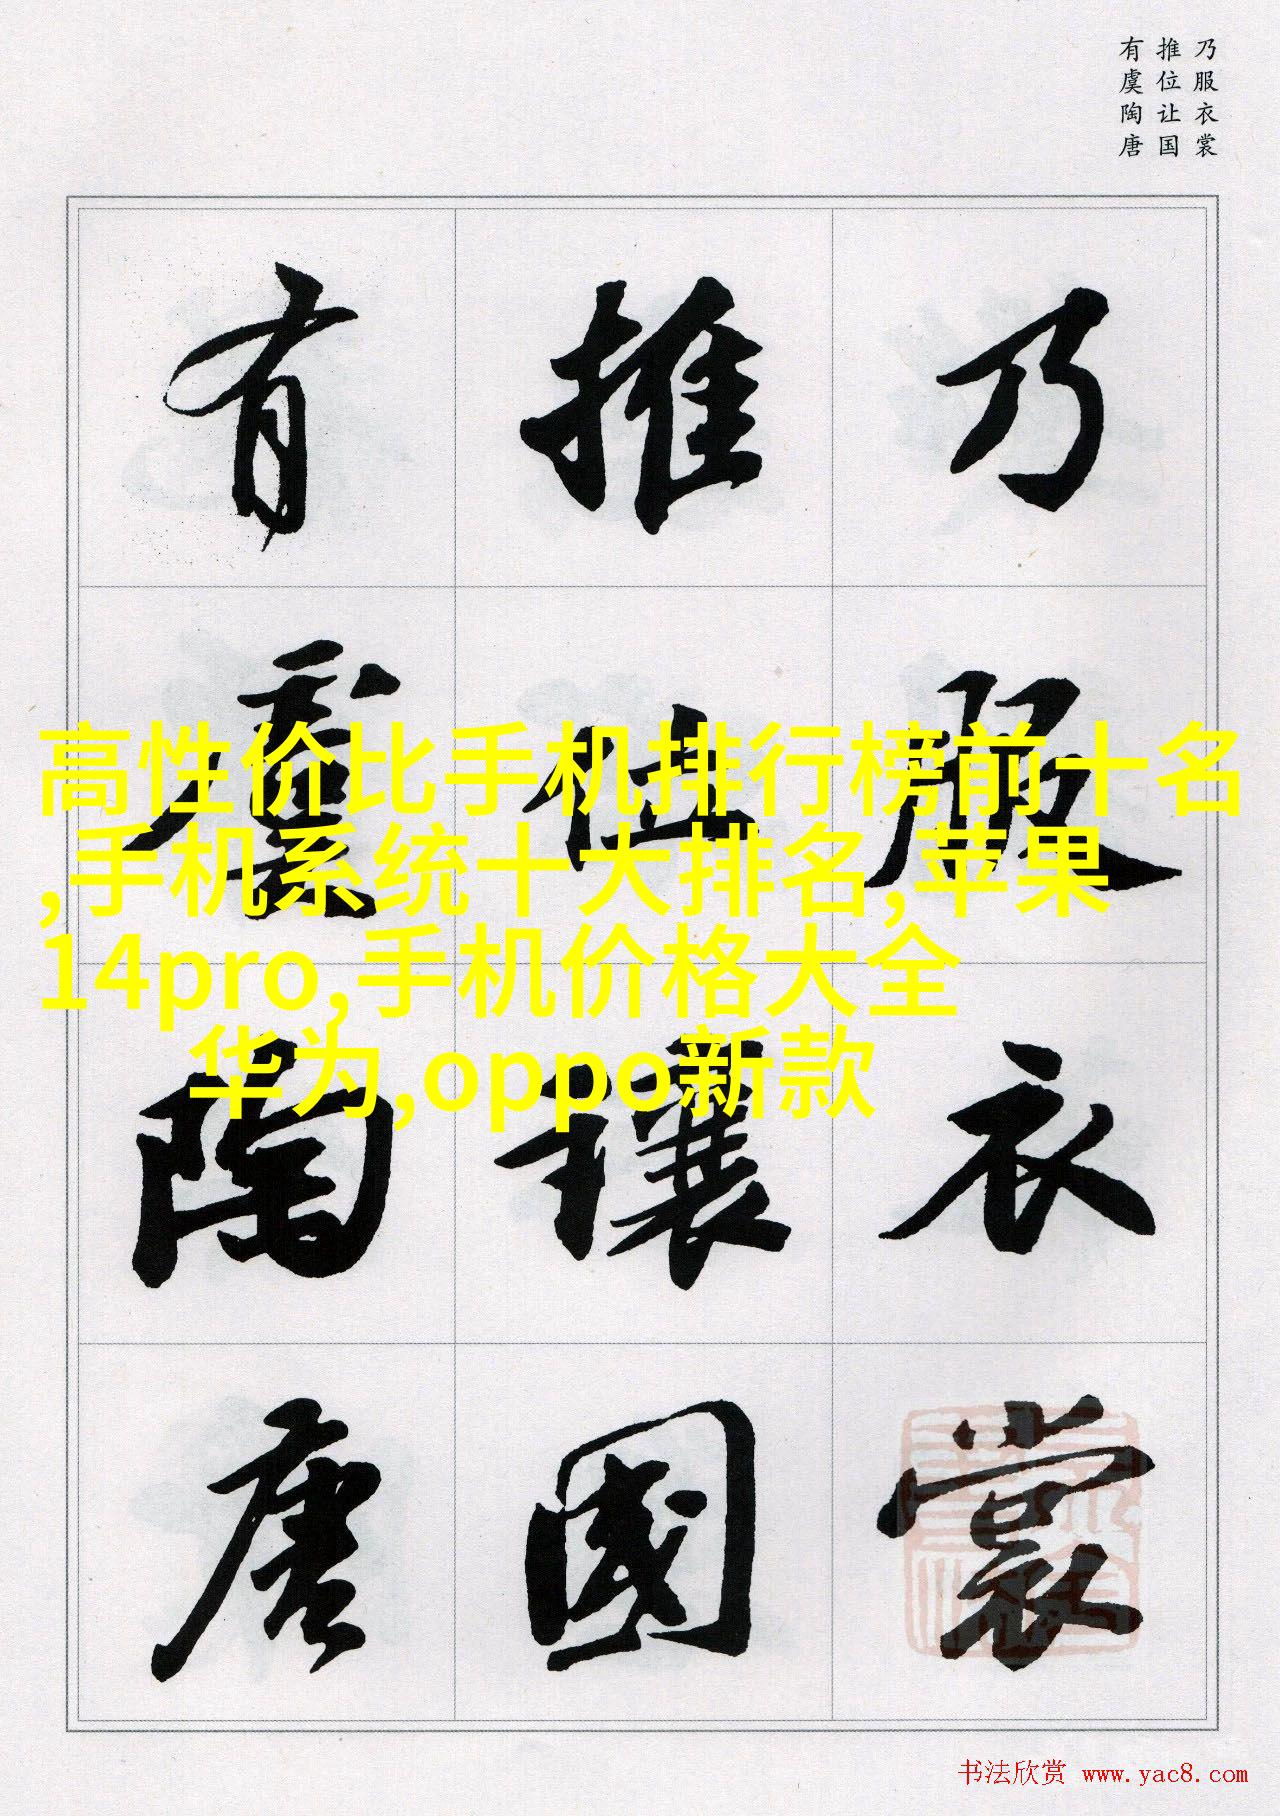 乃服衣裳
推位让国
有虞陶唐
乃服衣裳
推位讓國
有虞陶唐
高性价比手机排行榜前十名
,手机系统十大排名,苹果
14pro,手机价格大全
华为,oppo新款
书法欣赏 www.yac8.com